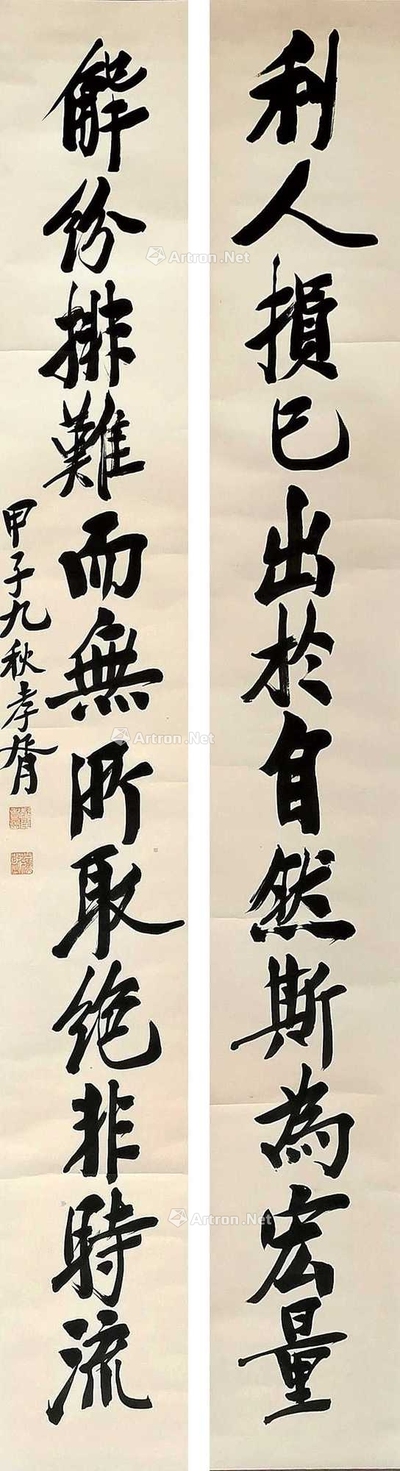 利人損已出於自然斯為宏量
解紛排難而無所取絶非時流
甲子九秋孝胥
Artron.Net
Artron.Net
Artron.Net
Artron.Net